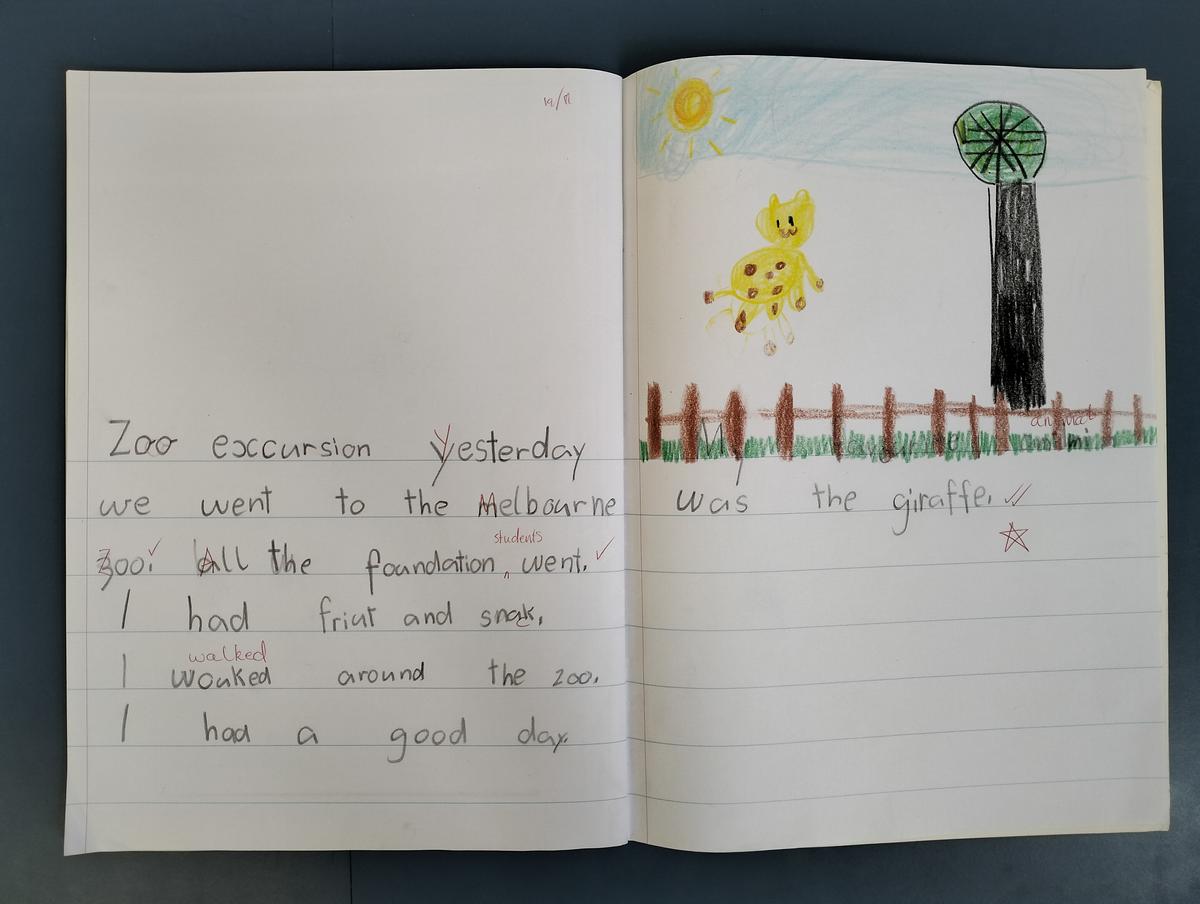 19/11
Zoo exccursion Yesterday
we went to the Melbourne
students
Zoo. All the foundation ‸ went.
I had friut and snak.
walked
I woaked around the zoo.
I had a good day.
animal
My
was the giraffe.